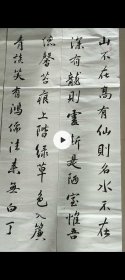 山不在高有仙則名水不在
深有龍則靈斯是陋室惟吾
德馨苔痕上階綠草色入簾
青談笑有鴻儒往来無白丁